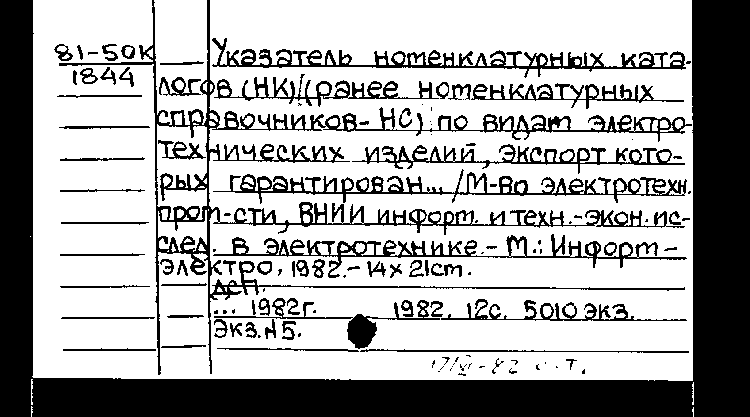 81-50К
1844
Указатель номенклатурных ката-
логов (НК)/(ранее номенклатурных
справочников- НС) по видам электро-
технических изделий, экспорт кото-
рых гарантирован... /М-во электротехн.
пром-сти, ВНИИ информ. и техн.-экон. ис-
след. в электротехнике.- М.: Информ-
электро, 1982.- 14x21cm.
ДСП.
... 1982г. 1982. 12с. 5010 экз.
Экз. №5.